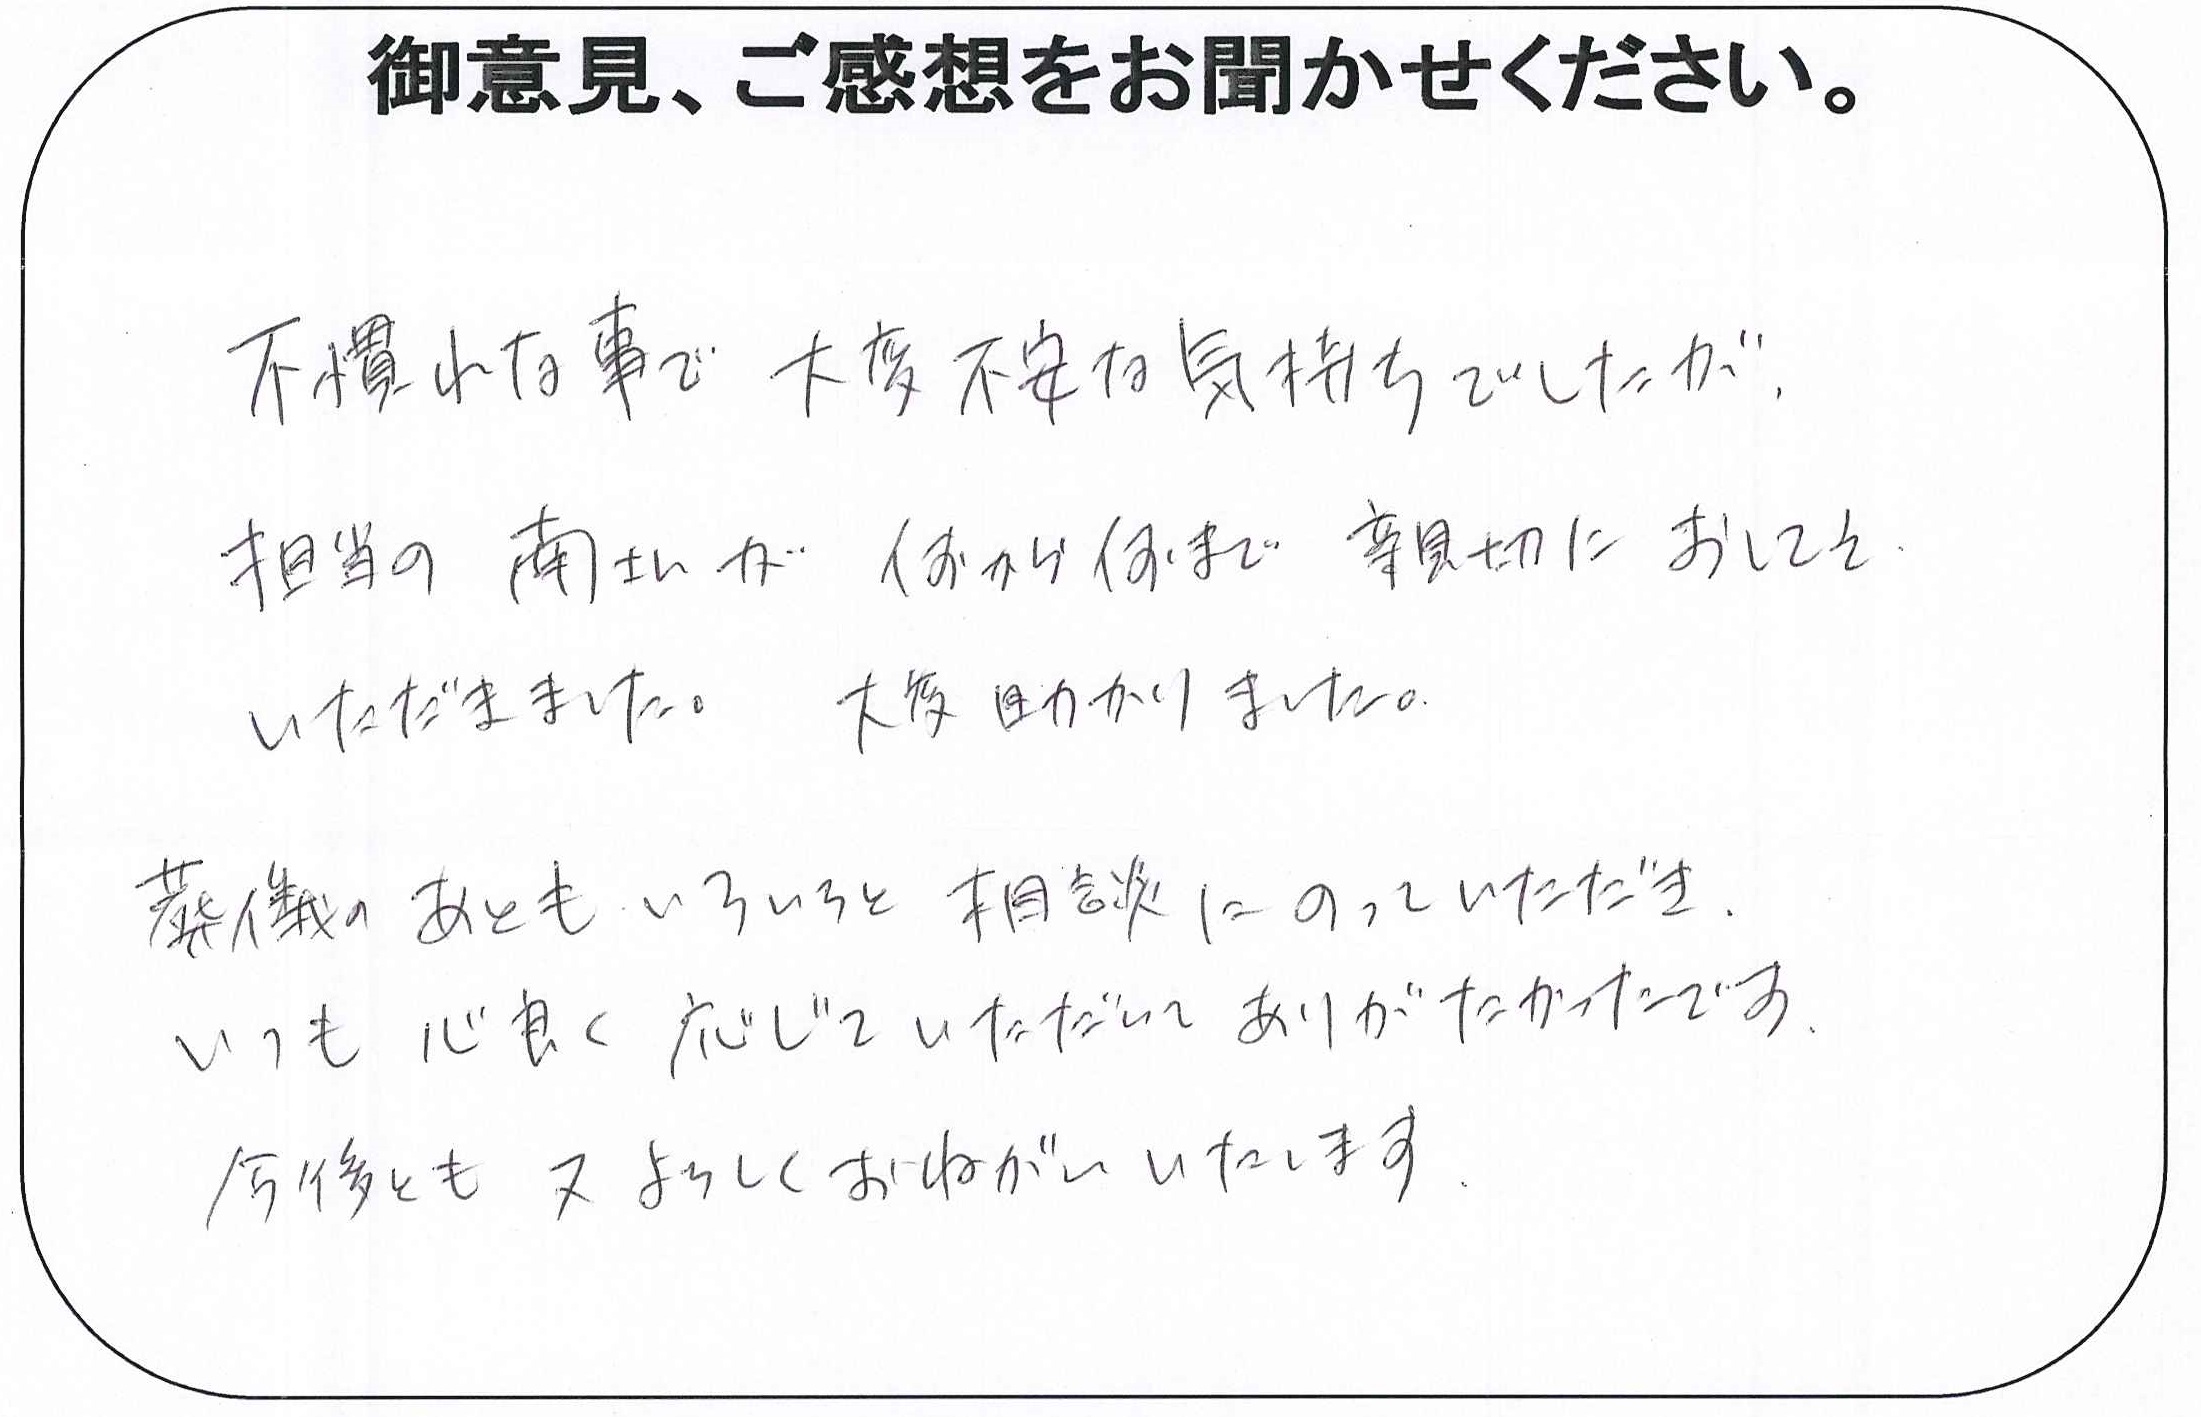 御意見、ご感想をお聞かせください。
不慣れな事で 大変不安な気持ちでしたが、
担当の 南さんが 何から何まで 親切に おしてえ
いただきました。 大変助かりました。
葬儀の あとも いろいろと 相談に のっていただき、
いつも 心良く 応じて いただいて ありがたかったです。
今後とも 又 よろしく おねがい いたします。